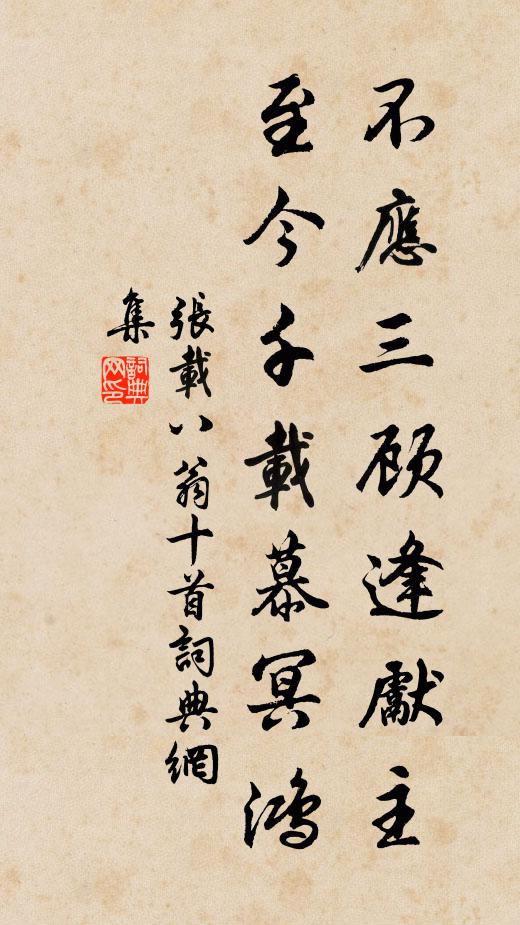 不應三顾逢獻主
至今千載慕冥鴻
張載八翁十首詞典網
集
詞典网印